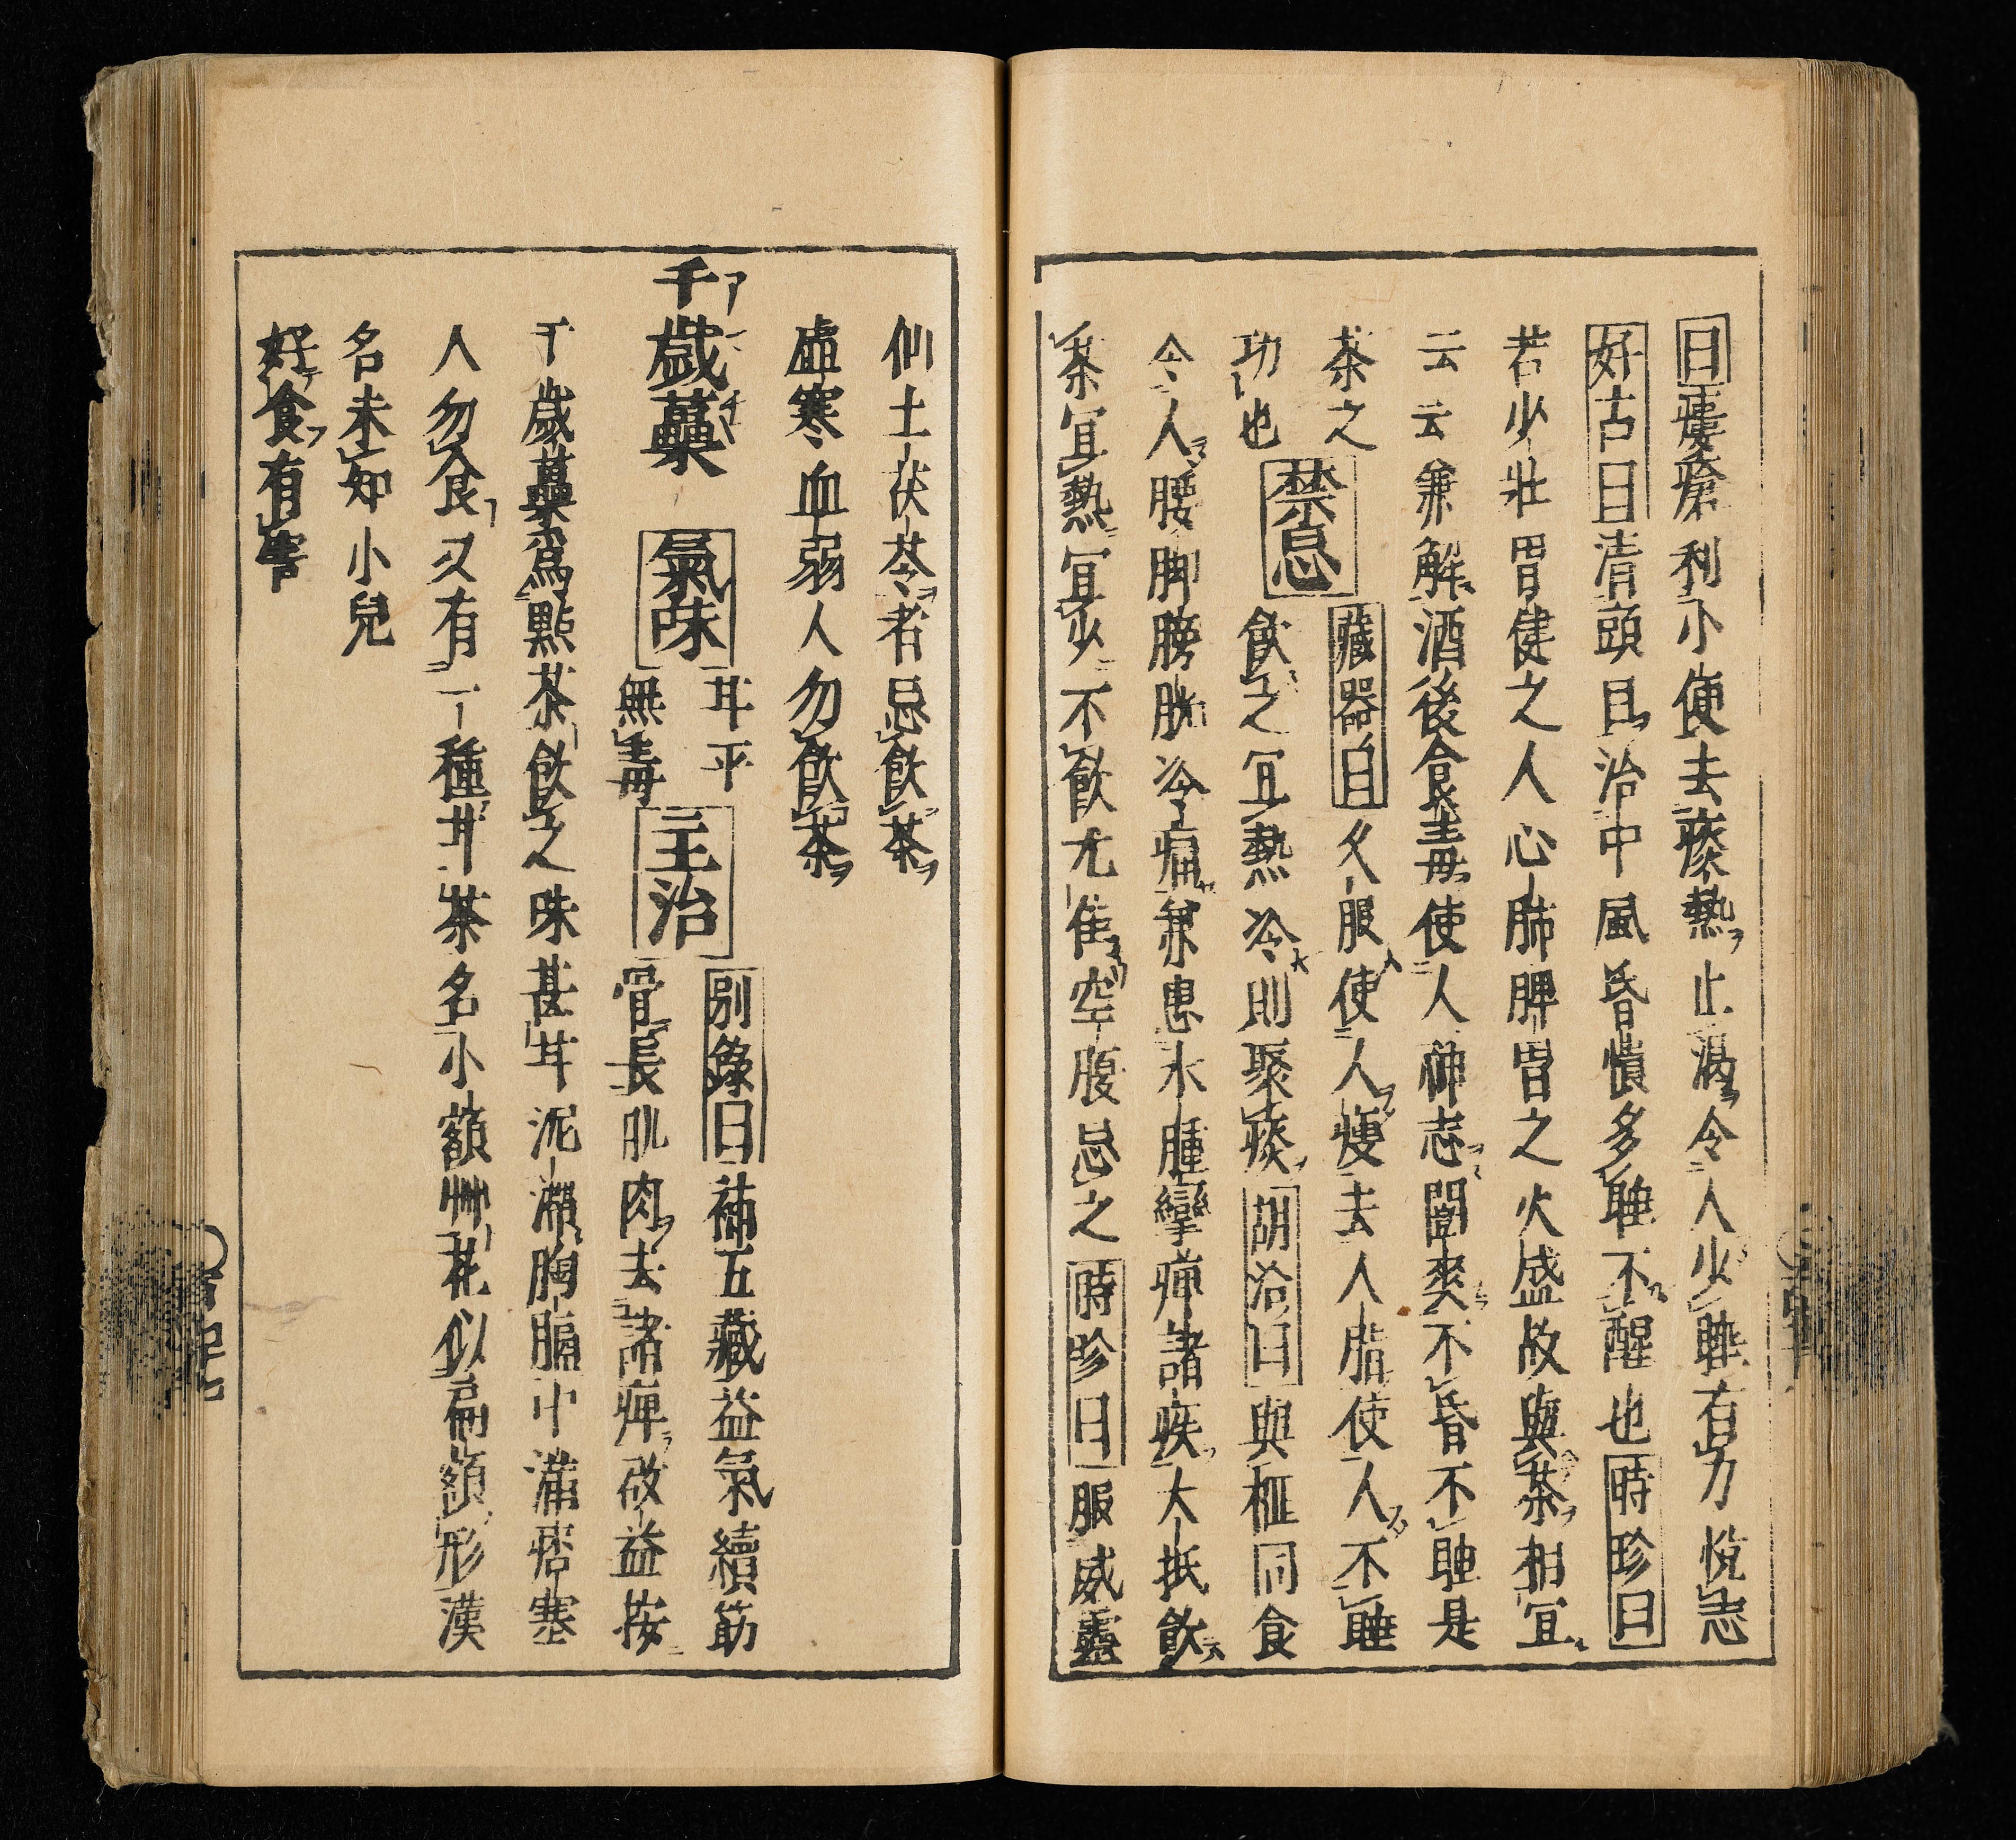 曰瘻瘡利小便去痰熱止渴令人少睡有力悅志
好古曰清頭目治中風昏憒多睡不醒也時珍曰
若少壯胃健之人心肺脾胃之火盛故與茶相宜
云云兼解酒後食毒使人神志闓爽不昏不睡是
茶之
功也
禁忌
藏器曰久服使人瘦去人脂使人不睡
飲之宜熱冷則聚痰胡洽曰與榧同食
令人腰脚膀胱冷痛兼患水腫攣痹諸疾大抵飲
茶宜熱宜少不飲尤佳空腹忌之時珍曰服威靈
仙土茯苓者忌飲茶
虛寒血弱人勿飲茶
千歲蘽
アマチヤ
氣味
甘平
無毒
主治
別錄曰補五藏益氣續筋
骨長肌肉去諸痹故益按
千歲蘽爲點茶飲之味甚甘泥滯胸膈中滿痞塞
人勿食又有一種甘茶名小額艸花似扁額形漢
名未知小兒
好食有害